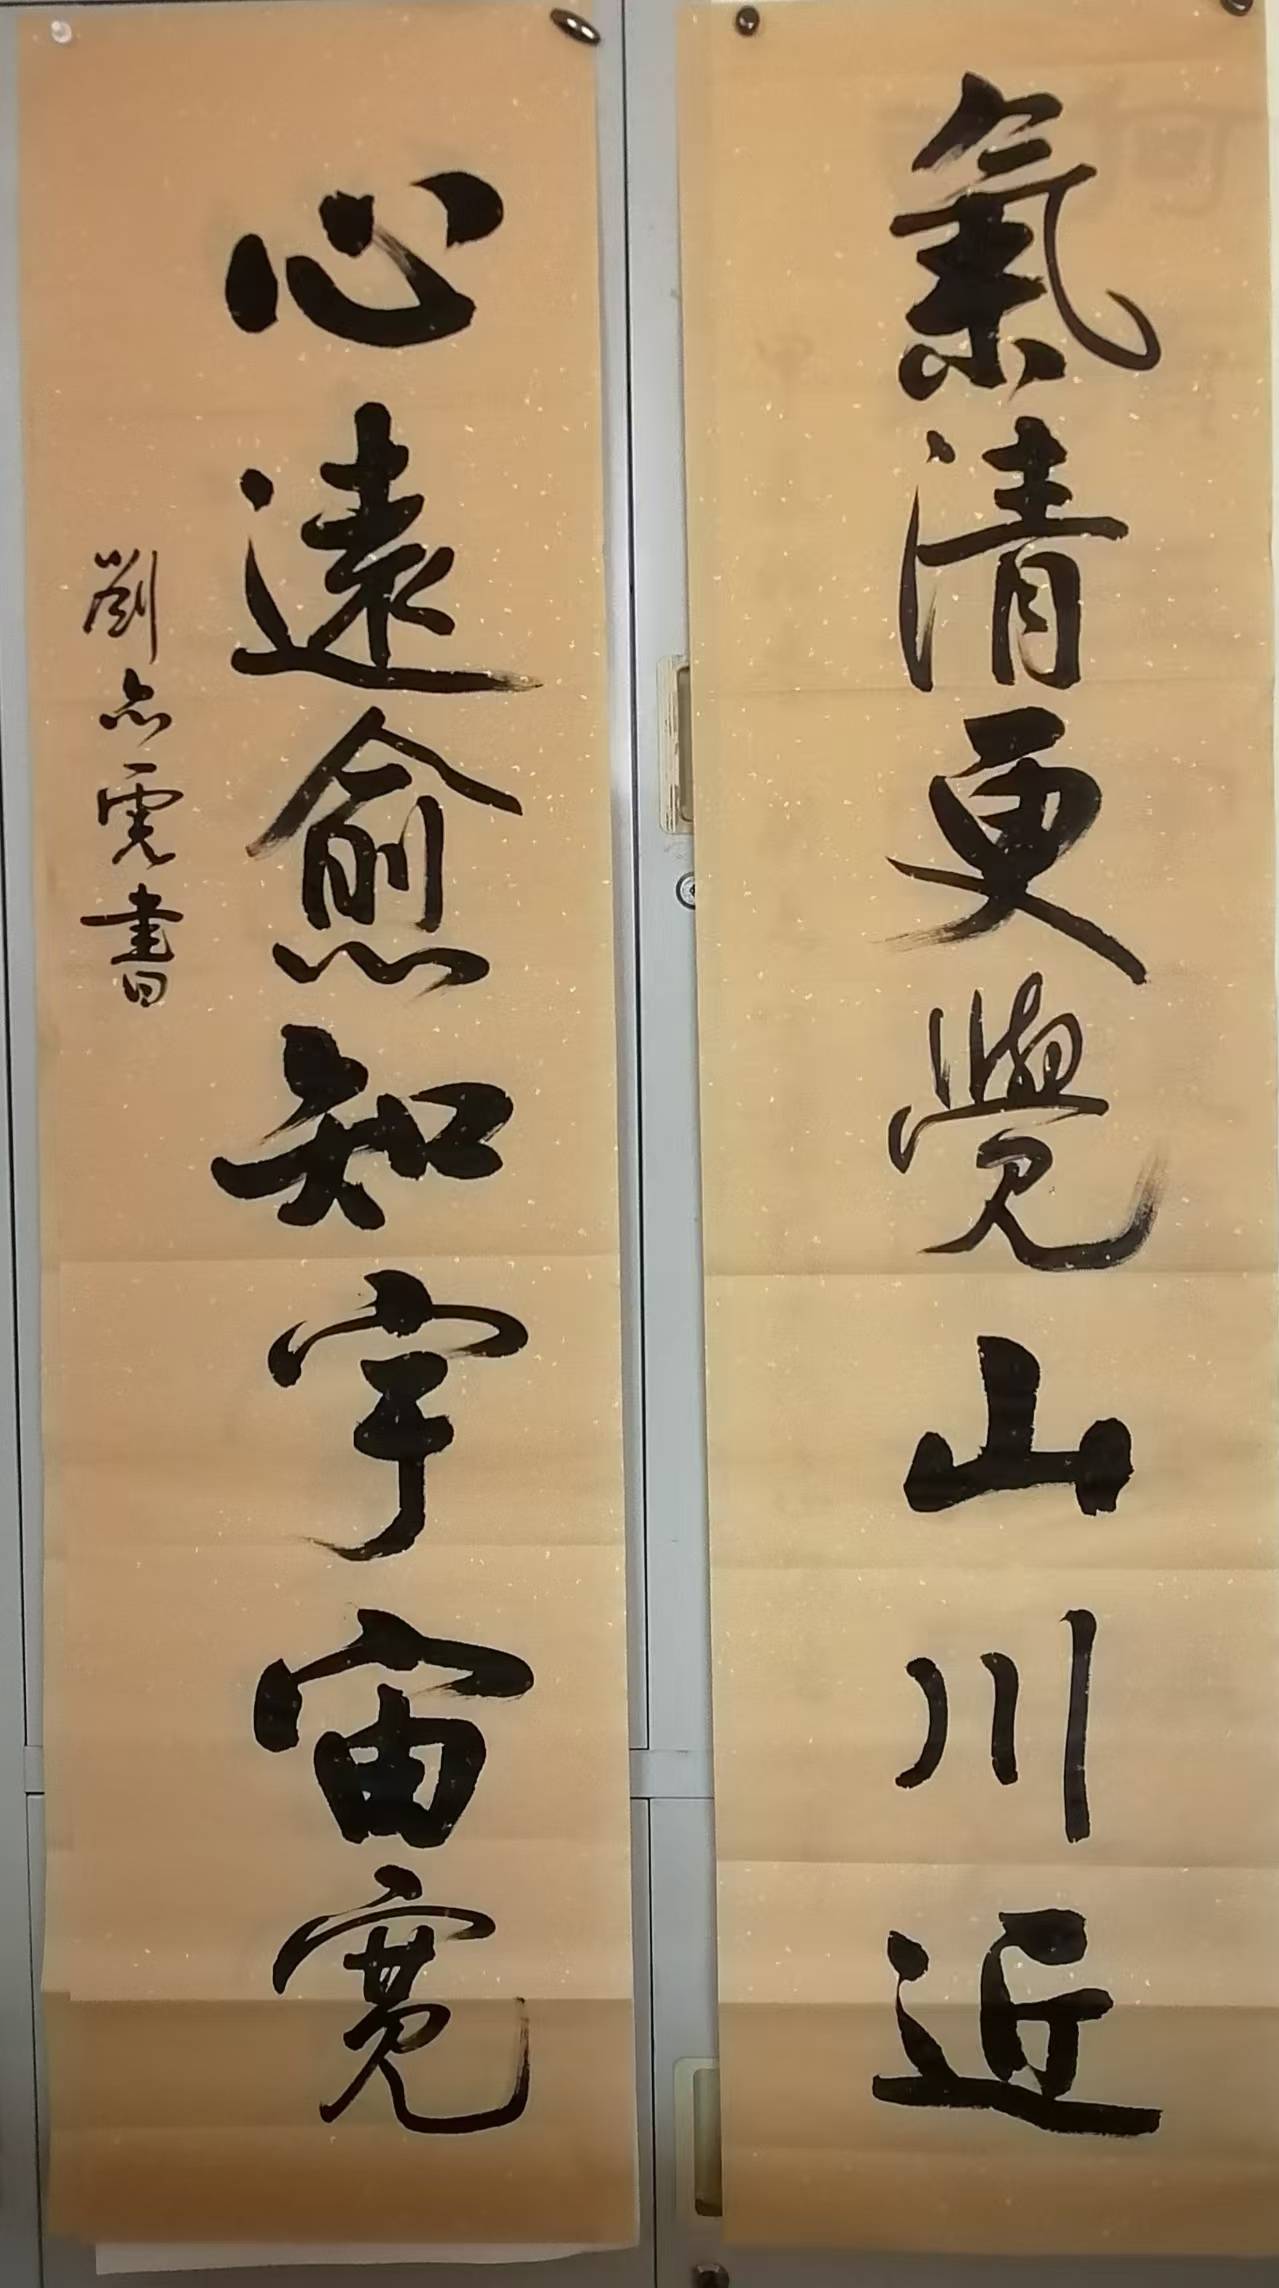 氣清更覺山川近
心遠愈知宇宙寬
劉亦雲書